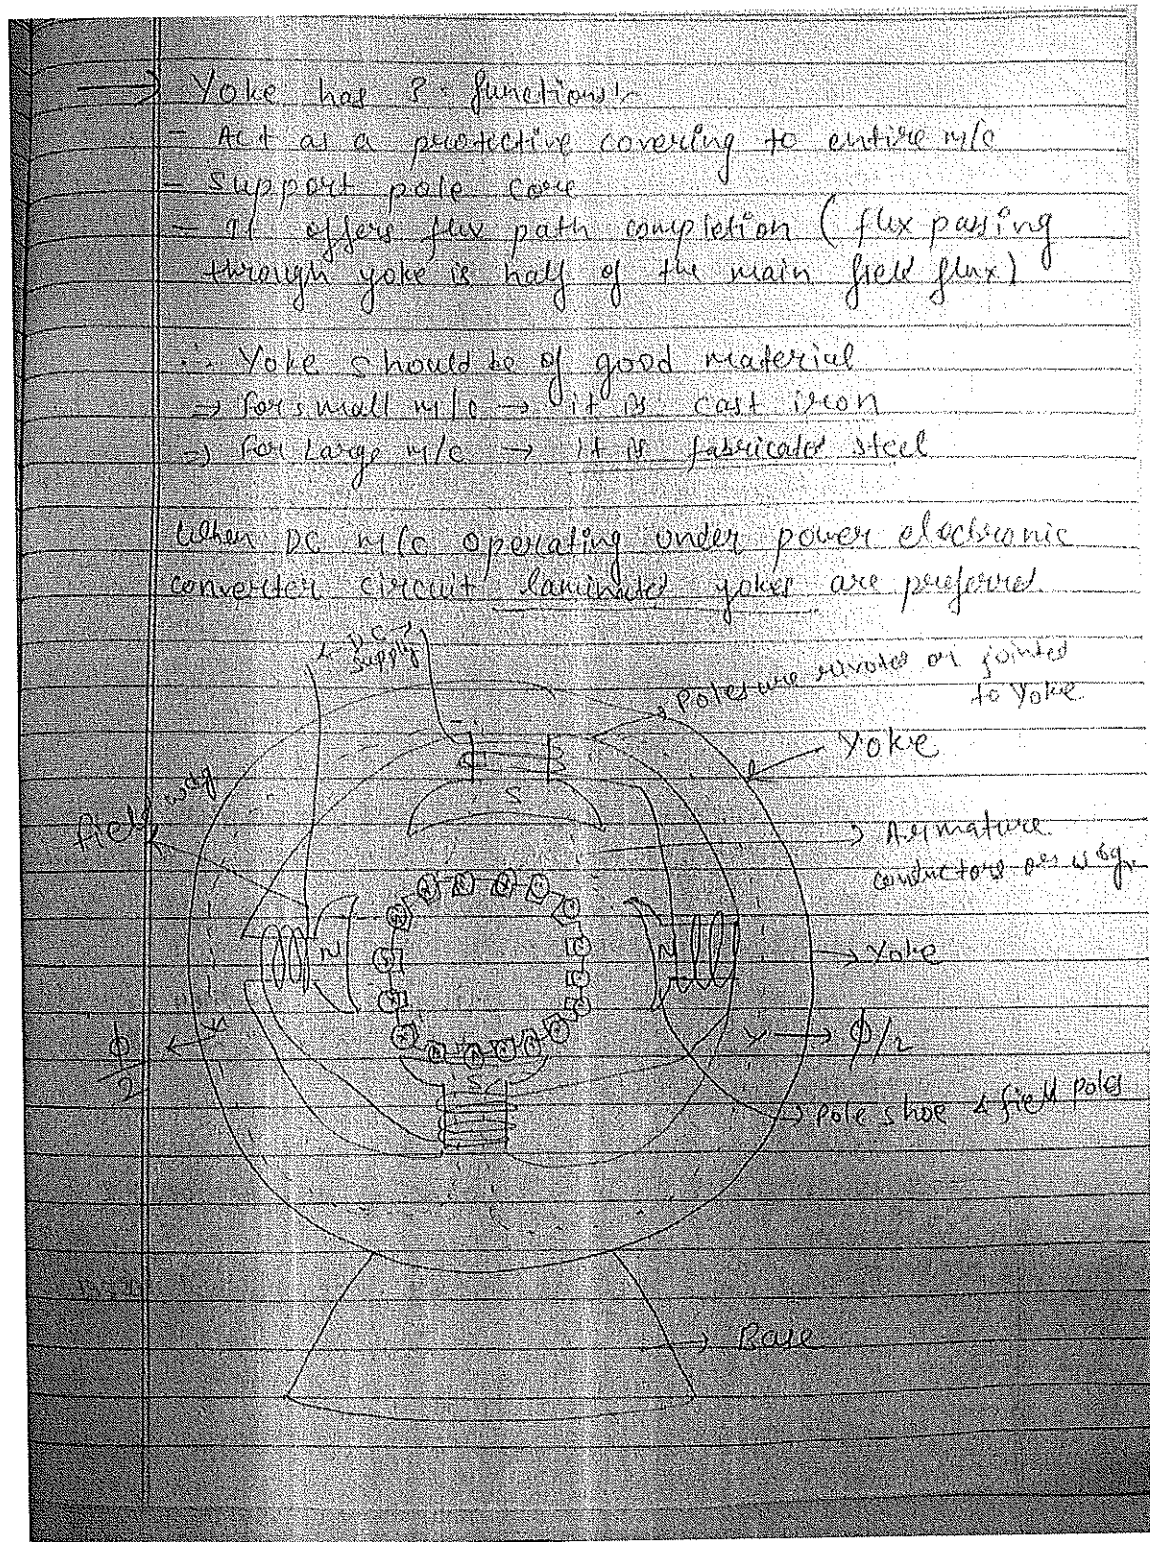 → Yoke has 3 functions:-
- Act as a protective covering to entire m/c
- Support pole core
- It offers flux path completion (flux passing
through yoke is half of the main field flux)
∴ Yoke should be of good material
⇒ for small m/c → it is cast iron
⇒ For Large m/c → it is fabricated steel
When DC m/c operating under power electronic
converter circuit laminated yokes are preferred.
DC
supply
Poles are rivoted or jointed
to Yoke
Yoke
field wdg
S
→ Armature
conductors or wdg
N
N
→ Yoke
ϕ/2
→ ϕ/2
S
→ Pole shoe & field poles
→ Base